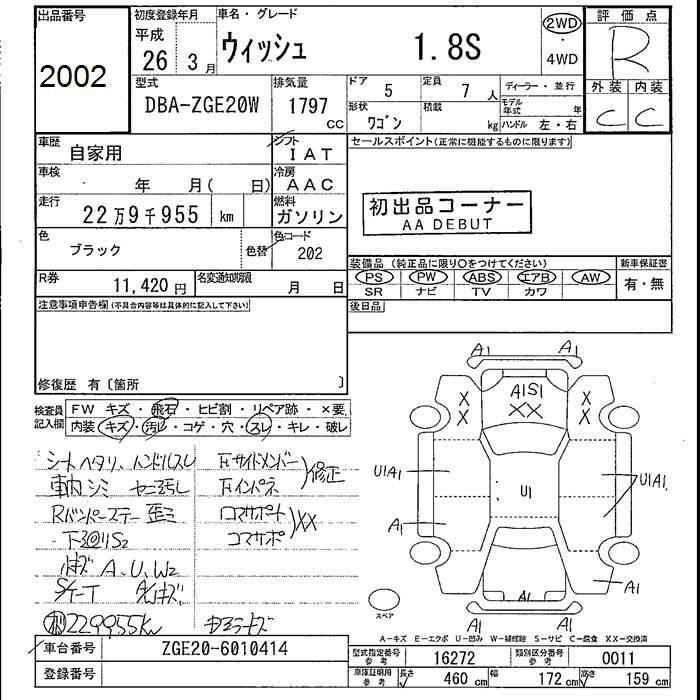 出品番号
2002
初度登録年月
平成
26 3月
車名・グレード
ウィッシュ 1.8S
2WD
・
4WD
評価点
R
外装 内装
C C
型式
DBA-ZGE20W
排気量
1797
CC
ドア 5
定員 7 人
形状 ワゴン
積載 kg
ディーラー・並行
モデル年式 年
ハンドル 左・右
車歴 自家用
シフト IAT
車検 年 月( 日)
冷房 AAC
走行 22万9千955 km
燃料 ガソリン
色 ブラック
色替
色コード 202
R券 11,420円
名変通知期限 月 日
セールスポイント(正常に機能するものに限ります)
初出品コーナー
AA DEBUT
装備品 (純正品に限り○をつけてください)
新車保証書
PS PW ABS エアB AW
SR ナビ TV カワ
有・無
後日品
注意事項申告欄(不具合内容等は具体的に記入して下さい)
修復歴 有〔箇所 〕
検査員記入欄
FW キズ・飛石・ヒビ割・リペア跡・×要
内装 キズ・汚レ・コゲ・穴・スレ・キレ・破レ
シートヘタリ、ハンドルスレ
車内シミ
Rバンパーステー歪ミ
A、U、W2
229955km
下サイドメンバー
下インパネ
修正
コアサポート
コアサポ
XX
A1 A1
A1S1
XX
X X
X X
U1A1
U1
U1A1
A1
A1
A1
A1 A1
スペア
A-キズ E-エクボ U-凹み W-補修跡 S-サビ C-腐食 XX-交換済
車台番号 ZGE20-6010414
登録番号
型式指定番号 参考 16272
類別区分番号 参考 0011
車庫証明用 参考
長さ 460 cm
幅 172 cm
高さ 159 cm